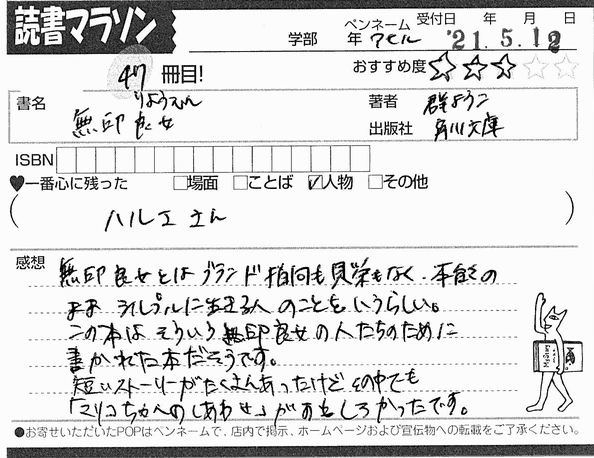 読書マラソン
学部 年 ペンネーム アセル 受付日 年 月 日 '21.5.12
47 冊目! おすすめ度 ☆☆☆☆☆
書名 無印良女 りょうじょ 著者 群ようこ
出版社 角川文庫
ISBN
♥一番心に残った □場面 □ことば ☑人物 □その他
( ハルエさん )
感想 無印良女とはブランド指向も見栄もなく、本能の
まま シンプルに生きる人 のことをいうらしい。
この本は そういう 無印良女の人たちのために
書かれた本だそうです。
短いストーリーがたくさんあったけど その中でも
「マリコちゃんのしあわせ」がおもしろかったです。
●お寄せいただいたPOPはペンネームで、店内で掲示、ホームページおよび宣伝物への転載をご了承ください。